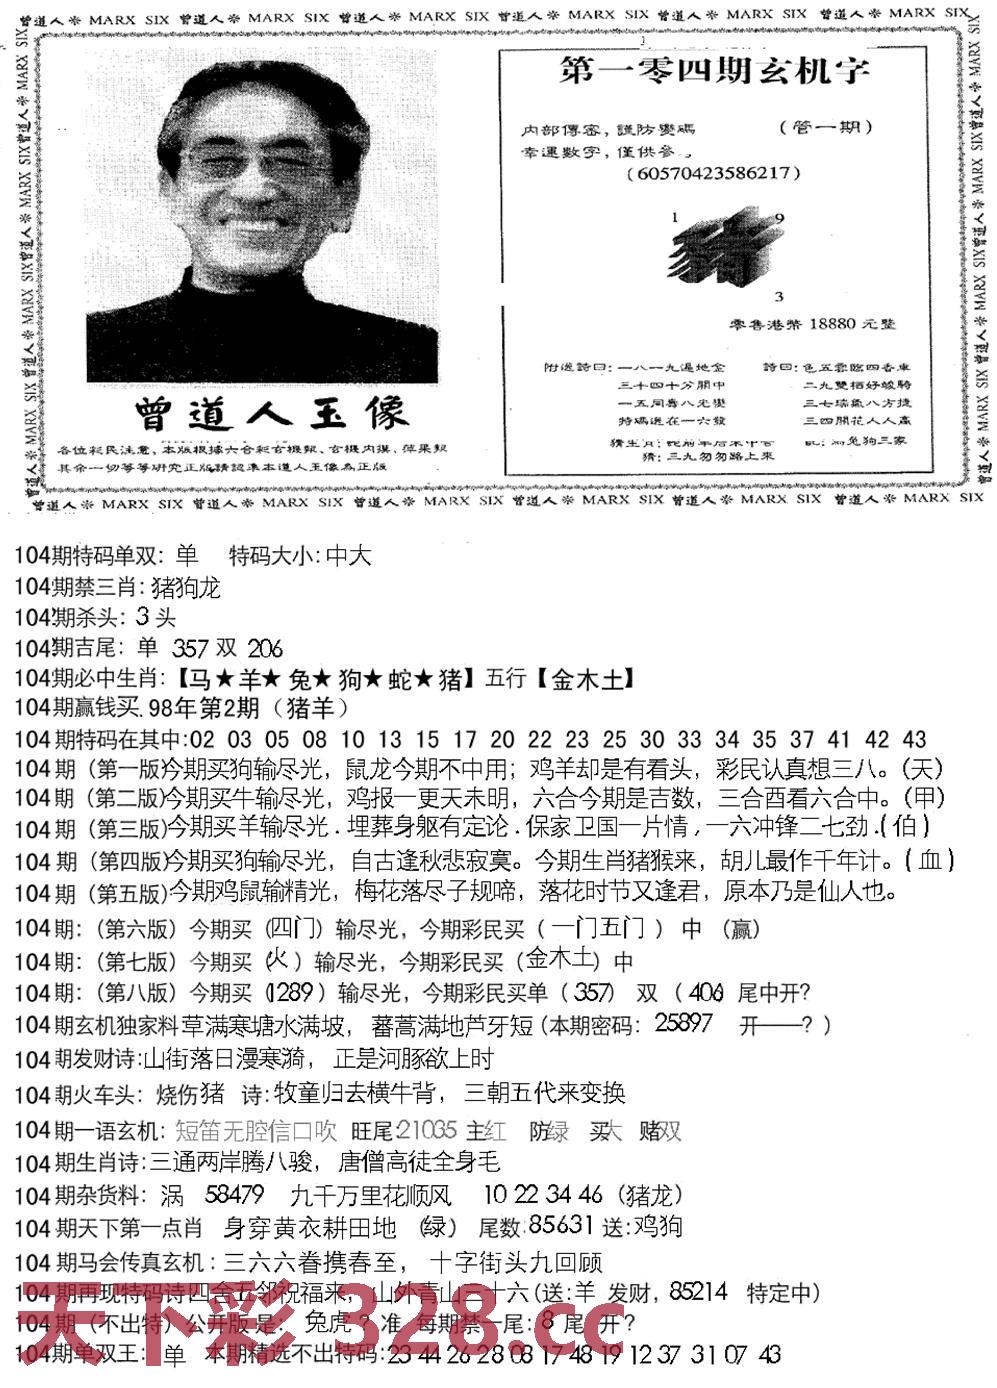 曾道人※ MARX SIX 曾道人※ MARX SIX 曾道人※ MARX SIX 曾道人※ MARX SIX 曾道人※ MARX SIX 曾道人※ MARX SIX
第一零四期玄机字
内部傳密，謹防變碼
(管一期)
幸運數字，僅供參
(60570423586217)
1 9
猪
3
零售港幣 18880 元整
附送詩曰：一八一九遍地金
三十四十分開中
一五同尋八光變
特碼送在一六發
詩曰：色五雲臨四香車
二九雙栖好峻騎
三七瑞氣八方捷
三四開花人人贏
猜：三九勿勿路上來
曾道人玉像
各位彩民注意，本版根據六合彩玄機報、玄機内摸、蘋果報
其余一切等等研究正版請認準本道人玉像為正版
曾道人※ MARX SIX 曾道人※ MARX SIX 曾道人※ MARX SIX 曾道人※ MARX SIX 曾道人※ MARX SIX 曾道人※ MARX SIX
104期特码单双：单 特码大小：中大
104期禁三肖：猪狗龙
104期杀头：3头
104期吉尾：单 357 双 206
104期必中生肖：【马★羊★兔★狗★蛇★猪】五行【金木土】
104期赢钱买.98年第2期（猪羊）
104期特码在其中:02 03 05 08 10 13 15 17 20 22 23 25 30 33 34 35 37 41 42 43
104期（第一版)今期买狗输尽光，鼠龙今期不中用；鸡羊却是有看头，彩民认真想三八。（天）
104期（第二版)今期买牛输尽光，鸡报一更天未明，六合今期是吉数，三合酉看六合中。（甲）
104期（第三版)今期买羊输尽光.埋葬身躯有定论.保家卫国一片情,一六冲锋二七劲.(伯)
104期（第四版)今期买狗输尽光，自古逢秋悲寂寞。今期生肖猪猴来，胡儿最作千年计。(血)
104期（第五版)今期鸡鼠输精光，梅花落尽子规啼，落花时节又逢君，原本乃是仙人也。
104期：（第六版）今期买（四门）输尽光，今期彩民买（一门五门）中（赢）
104期：（第七版）今期买（火）输尽光，今期彩民买（金木土）中
104期：（第八版）今期买（1289）输尽光，今期彩民买单（357） 双（406 尾中开?
104期玄机独家料草满寒塘水满坡，蕃蒿满地芦牙短(本期密码：25897 开——?)
104期发财诗:山街落日漫寒漪，正是河豚欲上时
104期火车头：烧伤猪 诗:牧童归去横牛背，三朝五代来变换
104期一语玄机：短笛无腔信口吹 旺尾:21035 主红 防绿 买大 赌双
104期生肖诗:三通两岸腾八骏，唐僧高徒全身毛
104期杂货料：涡 58479 九千万里花顺风 10 22 34 46（猪龙）
104期天下第一点肖 身穿黄衣耕田地（绿）尾数:85631 送:鸡狗
104期马会传真玄机：三六六眷携春至，十字街头九回顾
104期再现特码诗四舍五邻祝福来，山外青山三十六(送:羊 发财，85214 特定中)
104期（不出特）公开版是：兔虎？准 每期禁一尾：8尾 开？
104期单双王：单 本期精选不出特码:23 44 26 28 08 17 48 19 12 37 31 07 43
天下彩 328.cc